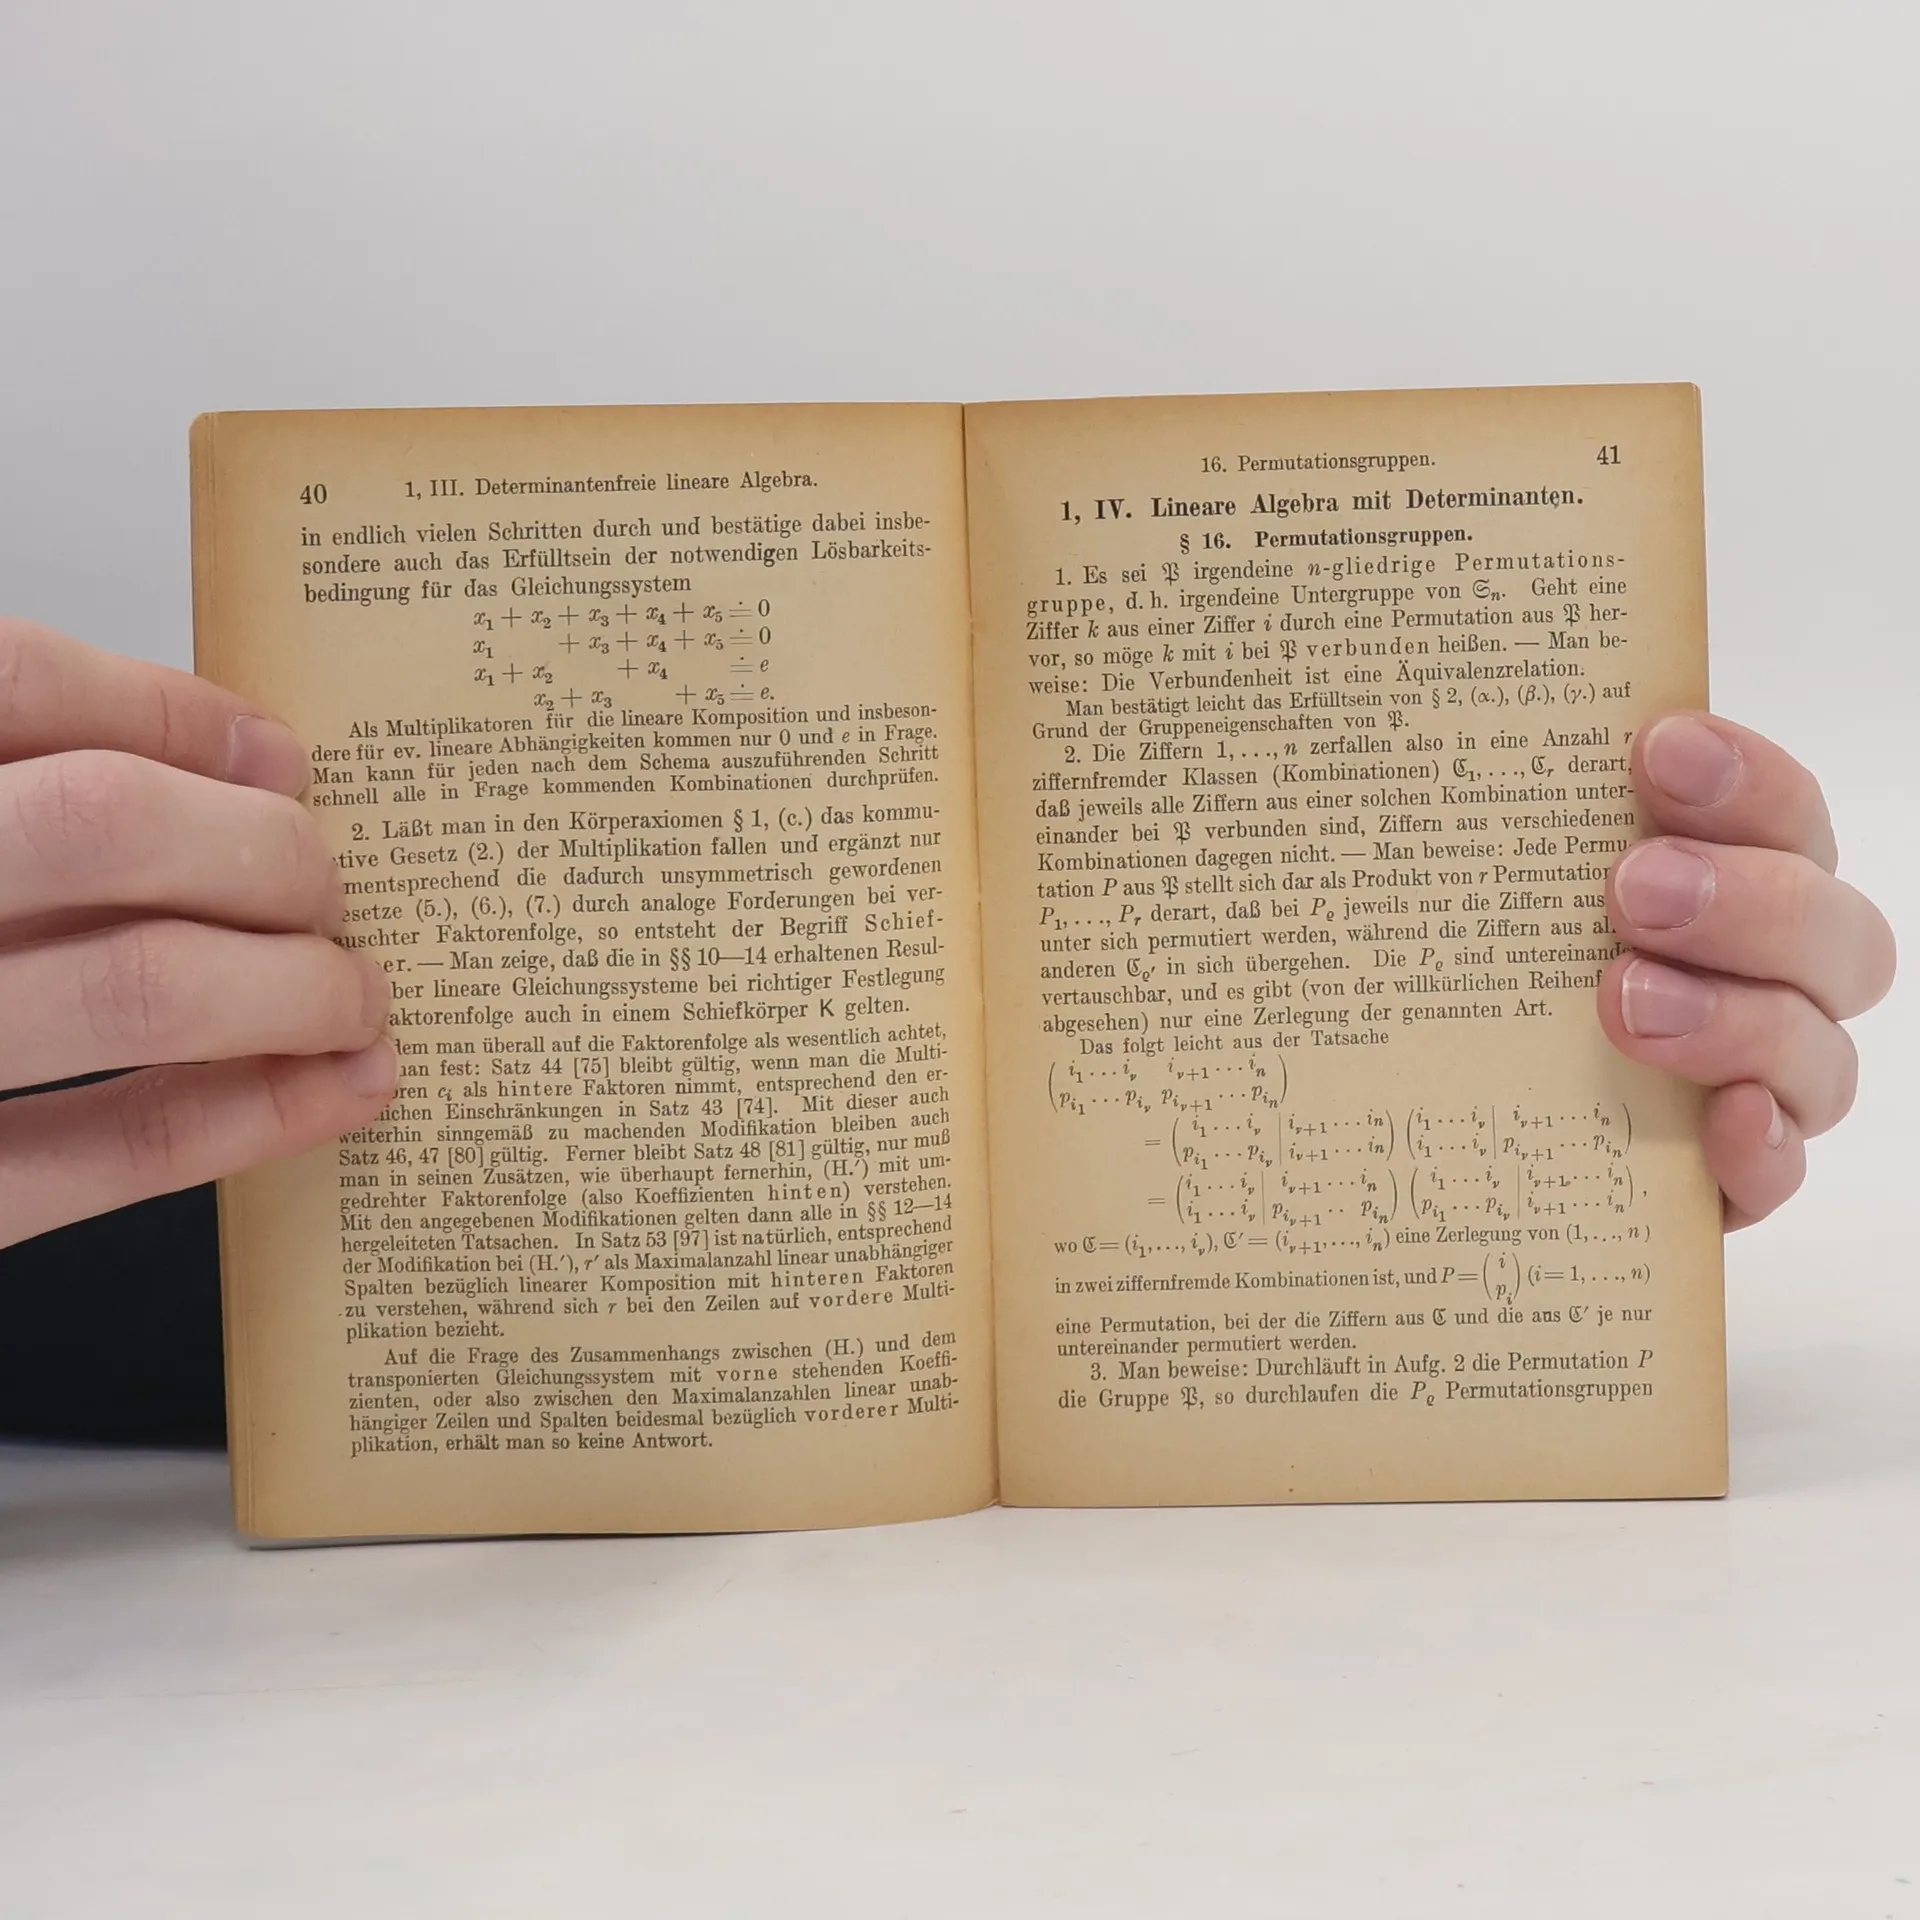 40 1, III. Determinantenfreie lineare Algebra.
in endlich vielen Schritten durch und bestätige dabei insbe-
sondere auch das Erfülltsein der notwendigen Lösbarkeits-
bedingung für das Gleichungssystem
x₁ + x₂ + x₃ + x₄ + x₅ ≐ 0
x₁ + x₃ + x₄ + x₅ ≐ 0
x₁ + x₂ + x₄ ≐ e
x₂ + x₃ + x₅ ≐ e.
Als Multiplikatoren für die lineare Komposition und insbeson-
dere für ev. lineare Abhängigkeiten kommen nur 0 und e in Frage.
Man kann für jeden nach dem Schema auszuführenden Schritt
schnell alle in Frage kommenden Kombinationen durchprüfen.
2. Läßt man in den Körperaxiomen § 1, (c.) das kommu-
tive Gesetz (2.) der Multiplikation fallen und ergänzt nur
mentsprechend die dadurch unsymmetrisch gewordenen
esetze (5.), (6.), (7.) durch analoge Forderungen bei ver-
uschter Faktorenfolge, so entsteht der Begriff Schief-
er. — Man zeige, daß die in §§ 10—14 erhaltenen Resul-
ber lineare Gleichungssysteme bei richtiger Festlegung
aktorenfolge auch in einem Schiefkörper K gelten.
dem man überall auf die Faktorenfolge als wesentlich achtet,
man fest: Satz 44 [75] bleibt gültig, wenn man die Multi-
oren cᵢ als hintere Faktoren nimmt, entsprechend den er-
lichen Einschränkungen in Satz 43 [74]. Mit dieser auch
weiterhin sinngemäß zu machenden Modifikation bleiben auch
Satz 46, 47 [80] gültig. Ferner bleibt Satz 48 [81] gültig, nur muß
man in seinen Zusätzen, wie überhaupt fernerhin, (H.′) mit um-
gedrehter Faktorenfolge (also Koeffizienten hinten) verstehen.
Mit den angegebenen Modifikationen gelten dann alle in §§ 12—14
hergeleiteten Tatsachen. In Satz 53 [97] ist natürlich, entsprechend
der Modifikation bei (H.′), r′ als Maximalanzahl linear unabhängiger
Spalten bezüglich linearer Komposition mit hinteren Faktoren
zu verstehen, während sich r bei den Zeilen auf vordere Multi-
plikation bezieht.
Auf die Frage des Zusammenhangs zwischen (H.) und dem
transponierten Gleichungssystem mit vorne stehenden Koeffi-
zienten, oder also zwischen den Maximalanzahlen linear unab-
hängiger Zeilen und Spalten beidesmal bezüglich vorderer Multi-
plikation, erhält man so keine Antwort.
16. Permutationsgruppen. 41
1, IV. Lineare Algebra mit Determinanten.
§ 16. Permutationsgruppen.
1. Es sei 𝔓 irgendeine n-gliedrige Permutations-
gruppe, d. h. irgendeine Untergruppe von 𝔖ₙ. Geht eine
Ziffer k aus einer Ziffer i durch eine Permutation aus 𝔓 her-
vor, so möge k mit i bei 𝔓 verbunden heißen. — Man be-
weise: Die Verbundenheit ist eine Äquivalenzrelation.
Man bestätigt leicht das Erfülltsein von § 2, (α.), (β.), (γ.) auf
Grund der Gruppeneigenschaften von 𝔓.
2. Die Ziffern 1, . . ., n zerfallen also in eine Anzahl r
ziffernfremder Klassen (Kombinationen) ℭ₁, . . ., ℭᵣ derart,
daß jeweils alle Ziffern aus einer solchen Kombination unter-
einander bei 𝔓 verbunden sind, Ziffern aus verschiedenen
Kombinationen dagegen nicht. — Man beweise: Jede Permu-
tation P aus 𝔓 stellt sich dar als Produkt von r Permutation
P₁, . . ., Pᵣ derart, daß bei P_ϱ jeweils nur die Ziffern aus
unter sich permutiert werden, während die Ziffern aus al
anderen ℭ_ϱ′ in sich übergehen. Die P_ϱ sind untereinander
vertauschbar, und es gibt (von der willkürlichen Reihenf
abgesehen) nur eine Zerlegung der genannten Art.
Das folgt leicht aus der Tatsache
( i₁ · · · i_ν i_ν+1 · · · iₙ )
( p_i₁ · · · p_i_ν p_i_ν+1 · · · p_iₙ )
= ( i₁ · · · i_ν | i_ν+1 · · · in ) ( i₁ · · · i_ν | i_ν+1 · · · iₙ )
( p_i₁ · · · p_i_ν | i_ν+1 · · · in ) ( i₁ · · · i_ν | p_i_ν+1 · · · p_iₙ )
= ( i₁ · · · i_ν | i_ν+1 · · · iₙ ) ( i₁ · · · i_ν | i_ν+1 · · · iₙ ) ,
( i₁ · · · i_ν | p_i_ν+1 · · p_iₙ ) ( p_i₁ · · · p_i_ν | i_ν+1 · · · iₙ )
wo ℭ = (i₁, . . ., i_ν), ℭ′ = (i_ν+1, . . ., iₙ) eine Zerlegung von (1, . . ., n)
in zwei ziffernfremde Kombinationen ist, und P = ( i / pᵢ ) (i = 1, . . ., n)
eine Permutation, bei der die Ziffern aus ℭ und die aus ℭ′ je nur
untereinander permutiert werden.
3. Man beweise: Durchläuft in Aufg. 2 die Permutation P
die Gruppe 𝔓, so durchlaufen die P_ϱ Permutationsgruppen